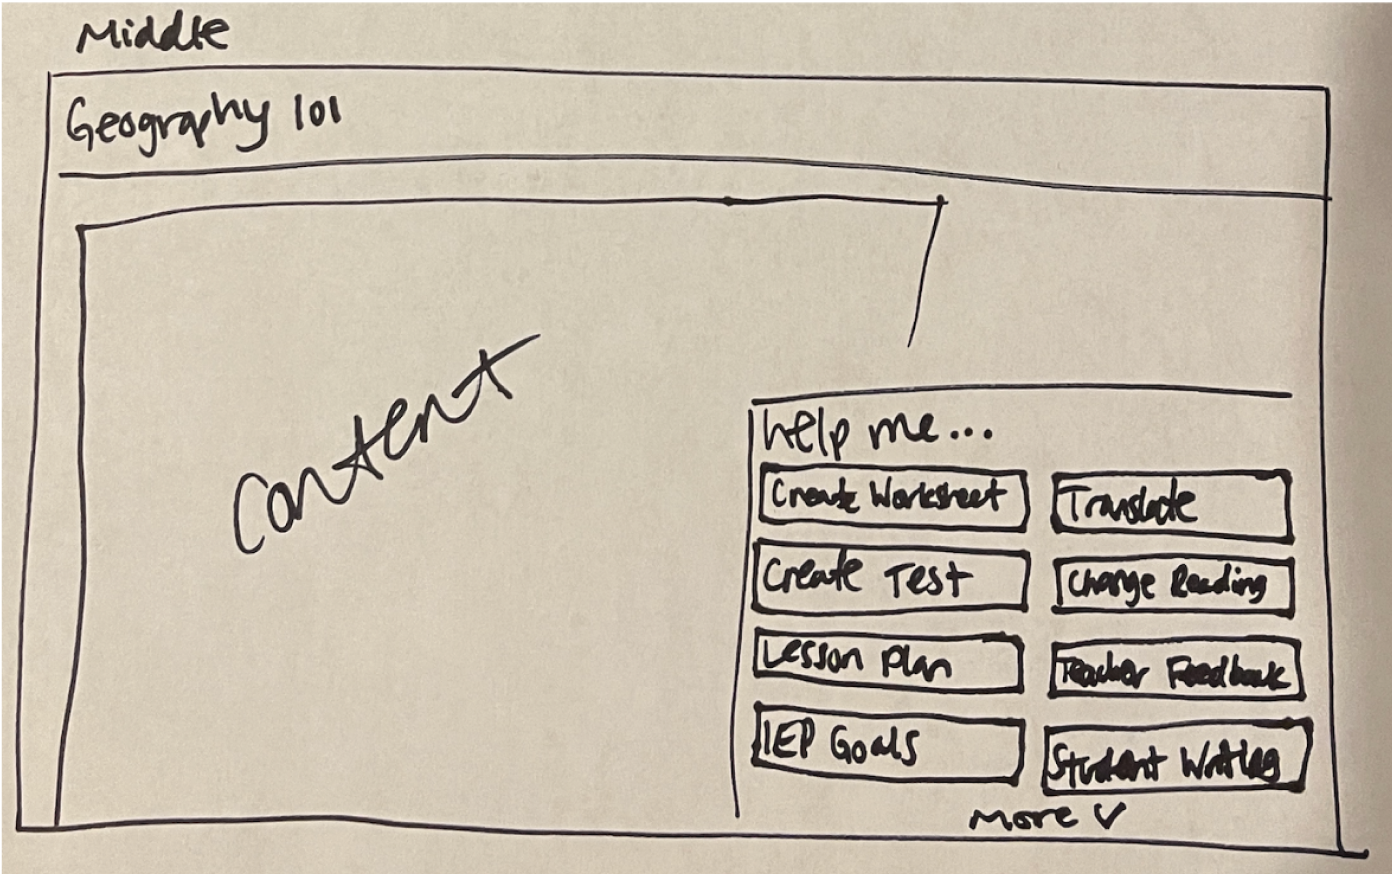 Middle
Geography 101
Content
help me...
Create Worksheet
Translate
Create Test
Change Reading
Lesson Plan
Teacher Feedback
IEP Goals
Student Writing
More v